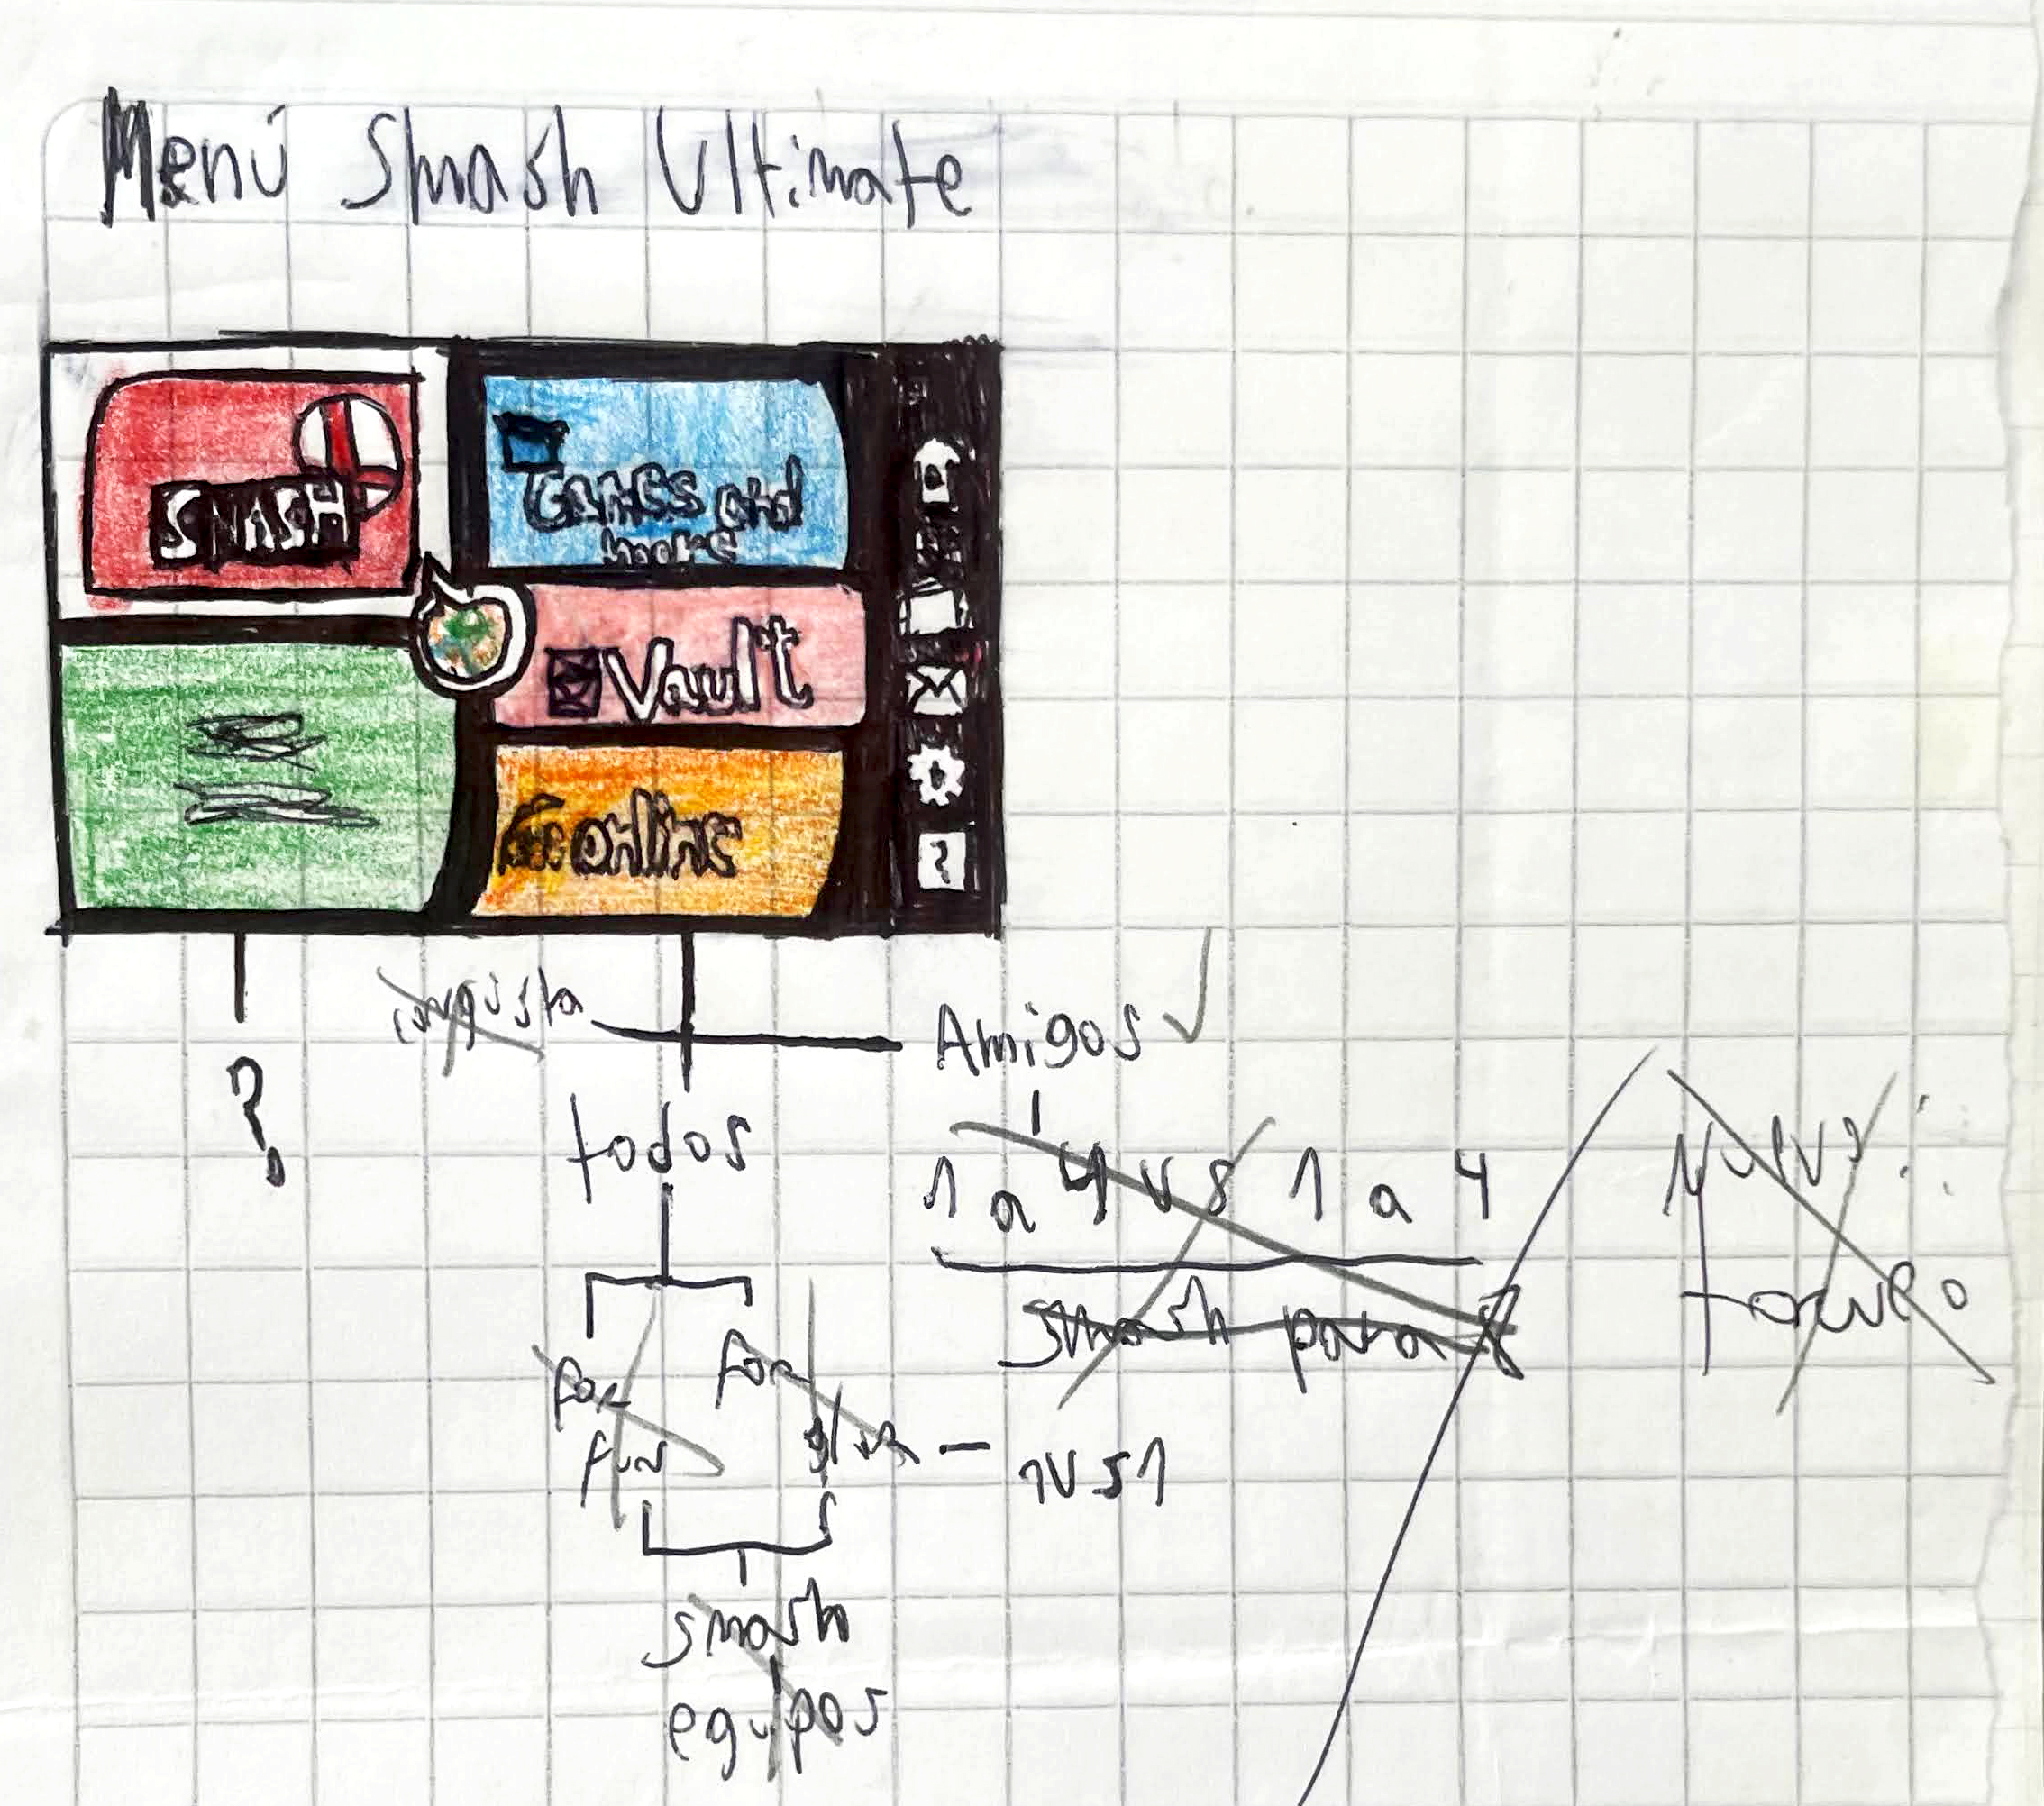 Menú Smash Ultimate
SMASH
Games and
more
Vault
online
?
conquista
Amigos ✓
?
todos
1 a 4 vs 1 a 4
smash para 8
For
fun
For
glory
- 1VS1
smash
equipos